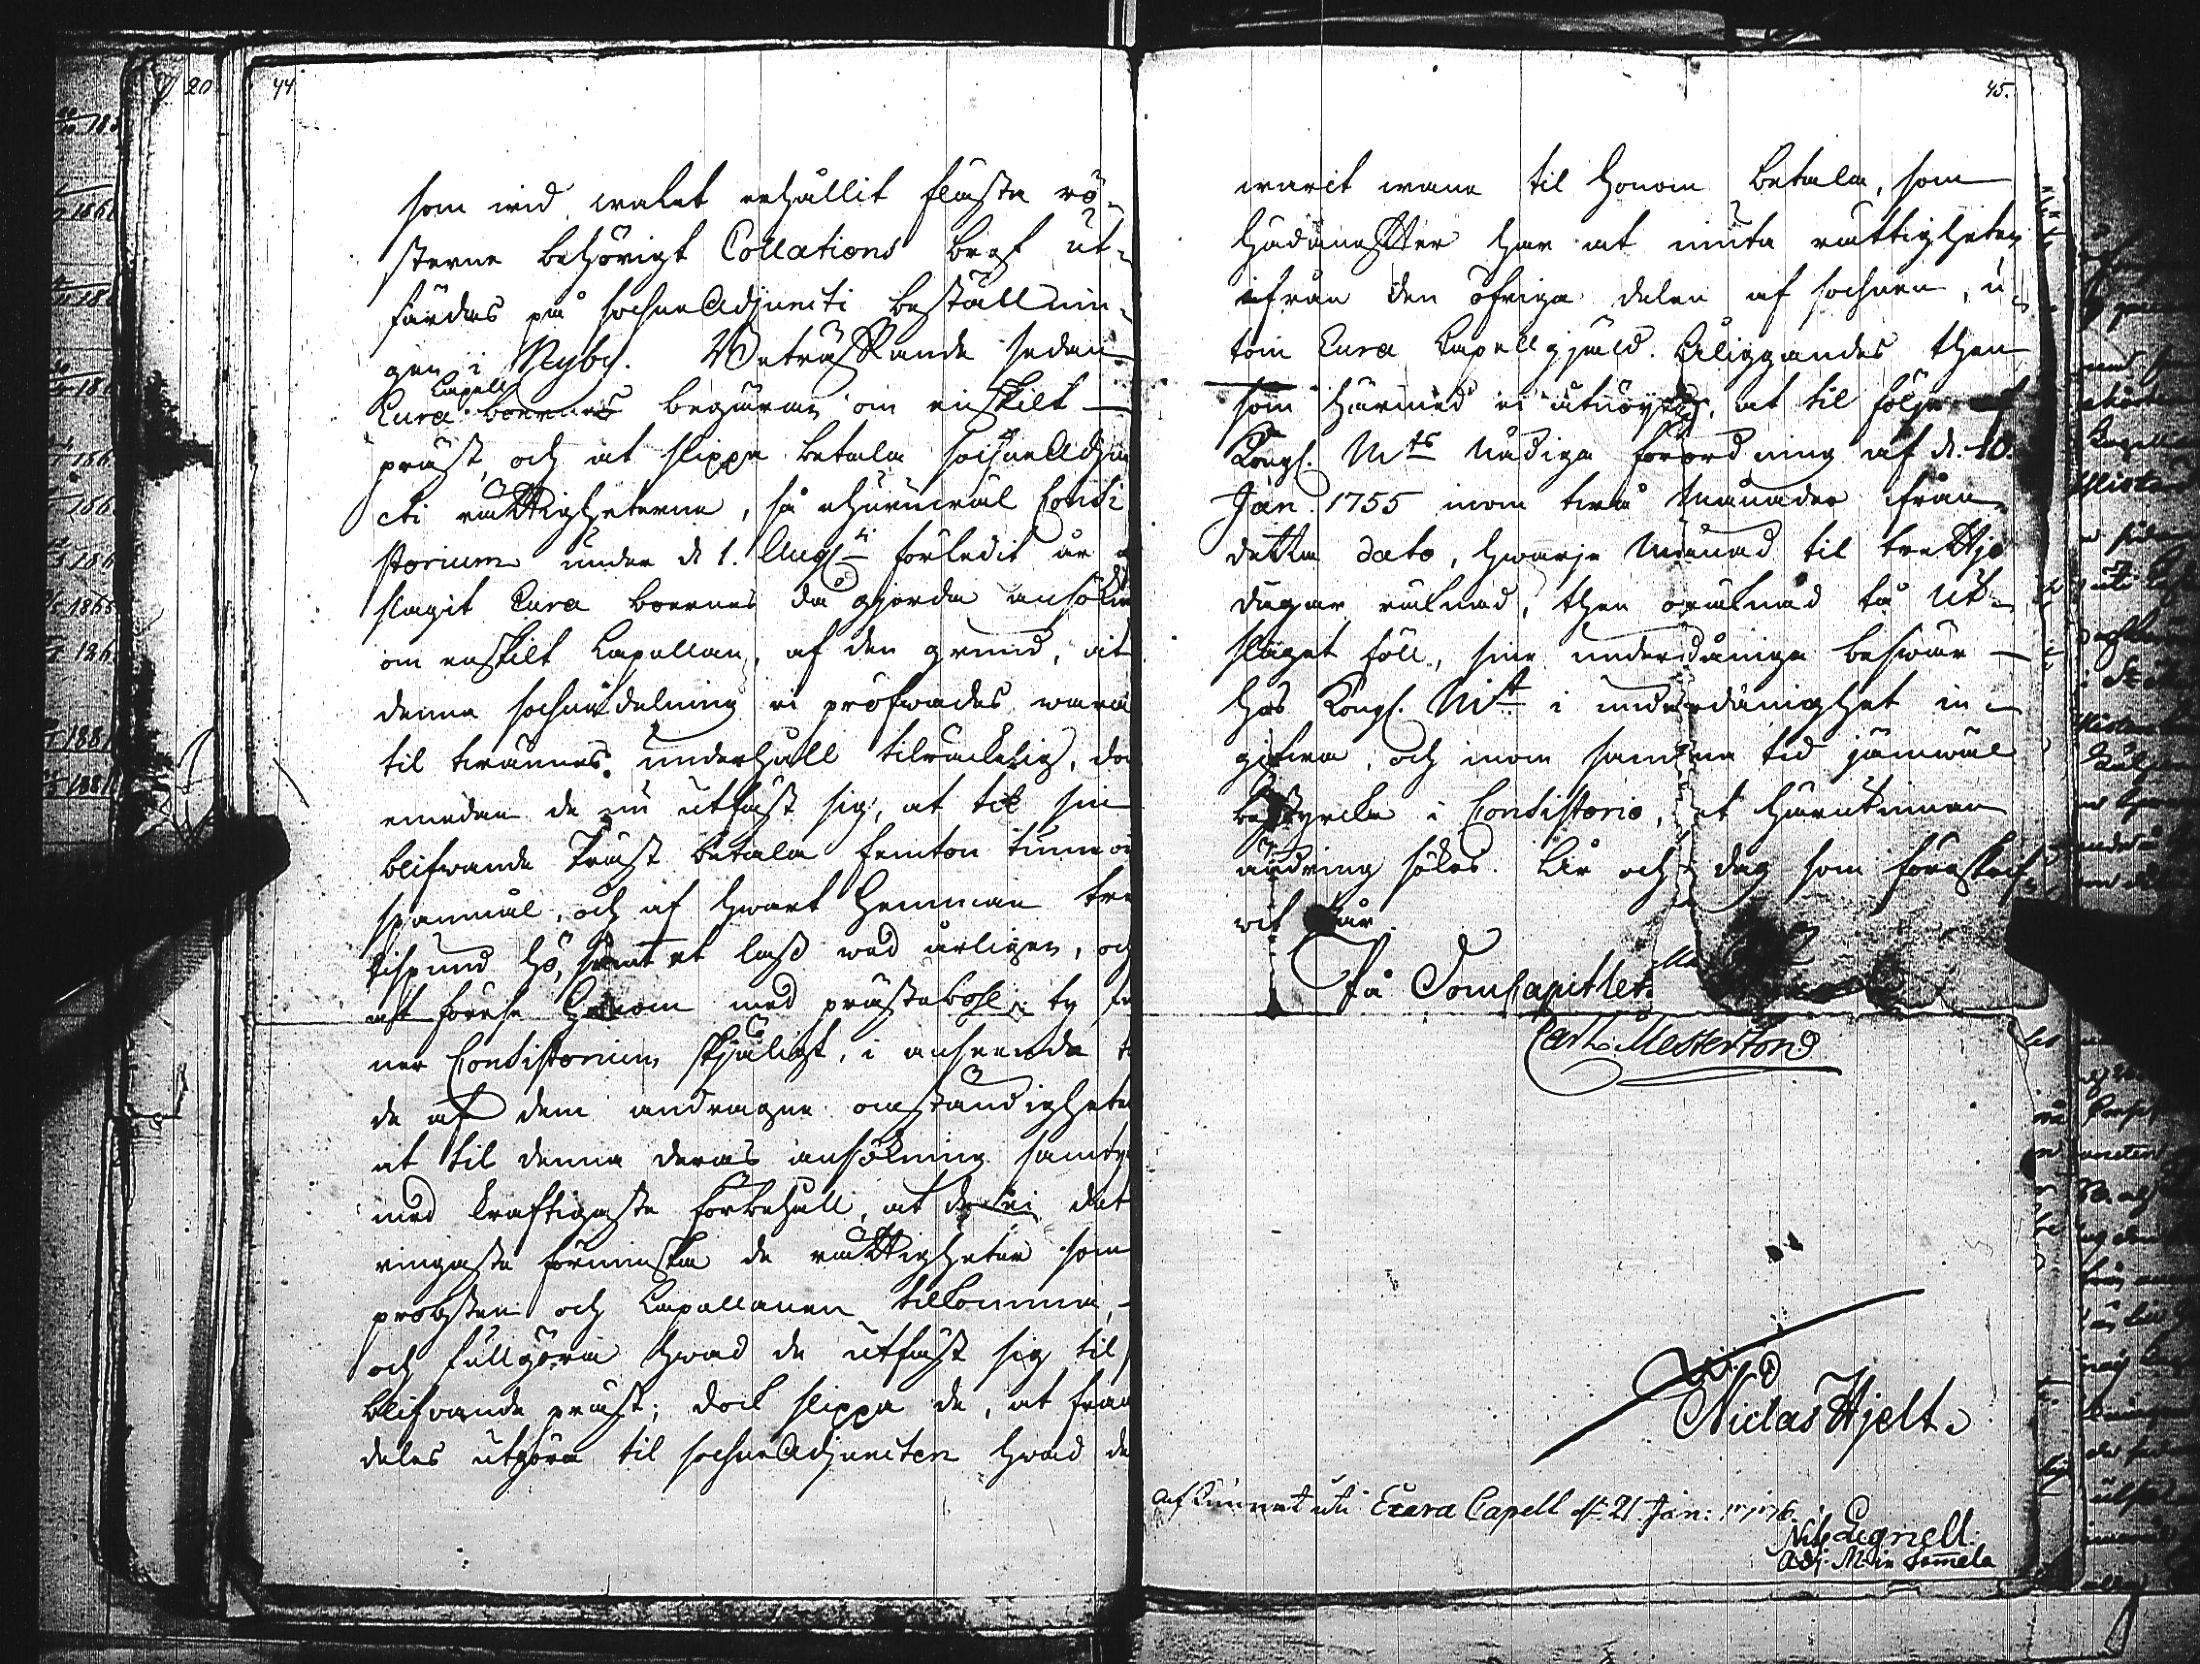 44
som wid walet erhållit flästa rö-
sterne behörigt Collations bref ut-
färdas på sochneAdjuncti beställnin-
gen i Nyby. Beträffande sedan
Capell
Eura boernes begäran om enskilt
präst, och at slippa betala sochneAdjun
cti rättigheterne, så ehuruwäl Consi
storium under d 1. Aug. förledit år
slagit Eura boernes då gjorda ansökn
om enskilt Capellan, af den grund, at
denna sochnedelning ei pröfwades wara
til twännes underhåll tilräckelig, do
emedan de nu utfäst sig, at til sin
blifwande Präst betala femton tunnor
spannmål, och af hwart Hemman tre
lispund hö, samt et lass wed årligen, och
at förese honom med prästebole, ty fin
ner Consistorium skjäligt, i anseende t
de af dem andragne omständigheter
at til denna deras ansökning samty
med kraftigaste förbehåll, at de ei det
ringaste förminska de rättigheter som
probsten och Capellanen tillkomma,
och fullgöra hwad de utfäst sig til
blifvande präst; dock slippa de, at fram
deles utgöra til sochneAdjuncten hwad de
45.
warit wane til honom betala, som
hädanefter har at niuta rättigheter
ifrån den öfriga delen af sochnen, u-
tom Eura Capellgjäld. Åliggandes then
som härmed ei åtnöyes, at til följe af
Kongl. Mts Nådiga förordning af d. 10.
Jan. 1755 inom twå Månader ifrån
detta dato, hwarje Månad til trettjo
dagar räknad, then oräknad tå Ut-
slaget föll, sine underdånige beswär
hos Kongl. Mt i underdånighet in-
gifwa, och inom samma tid jämwäl
bestyrcka i Consistorio, at härutinnan
ändring sökes. År och dag som föreskref-
wit står.
På DomCapitlets
Carl Mesterton
Niclas Hjelt
afkunnat uti Eura Capell d. 21 Jan:
Nils Lignell
Adj. M. in